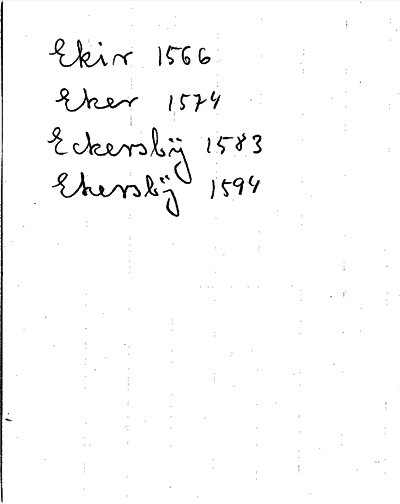 Ekir 1566
Eker 1574
Eckersbÿ 1583
Ekersbÿ 1594